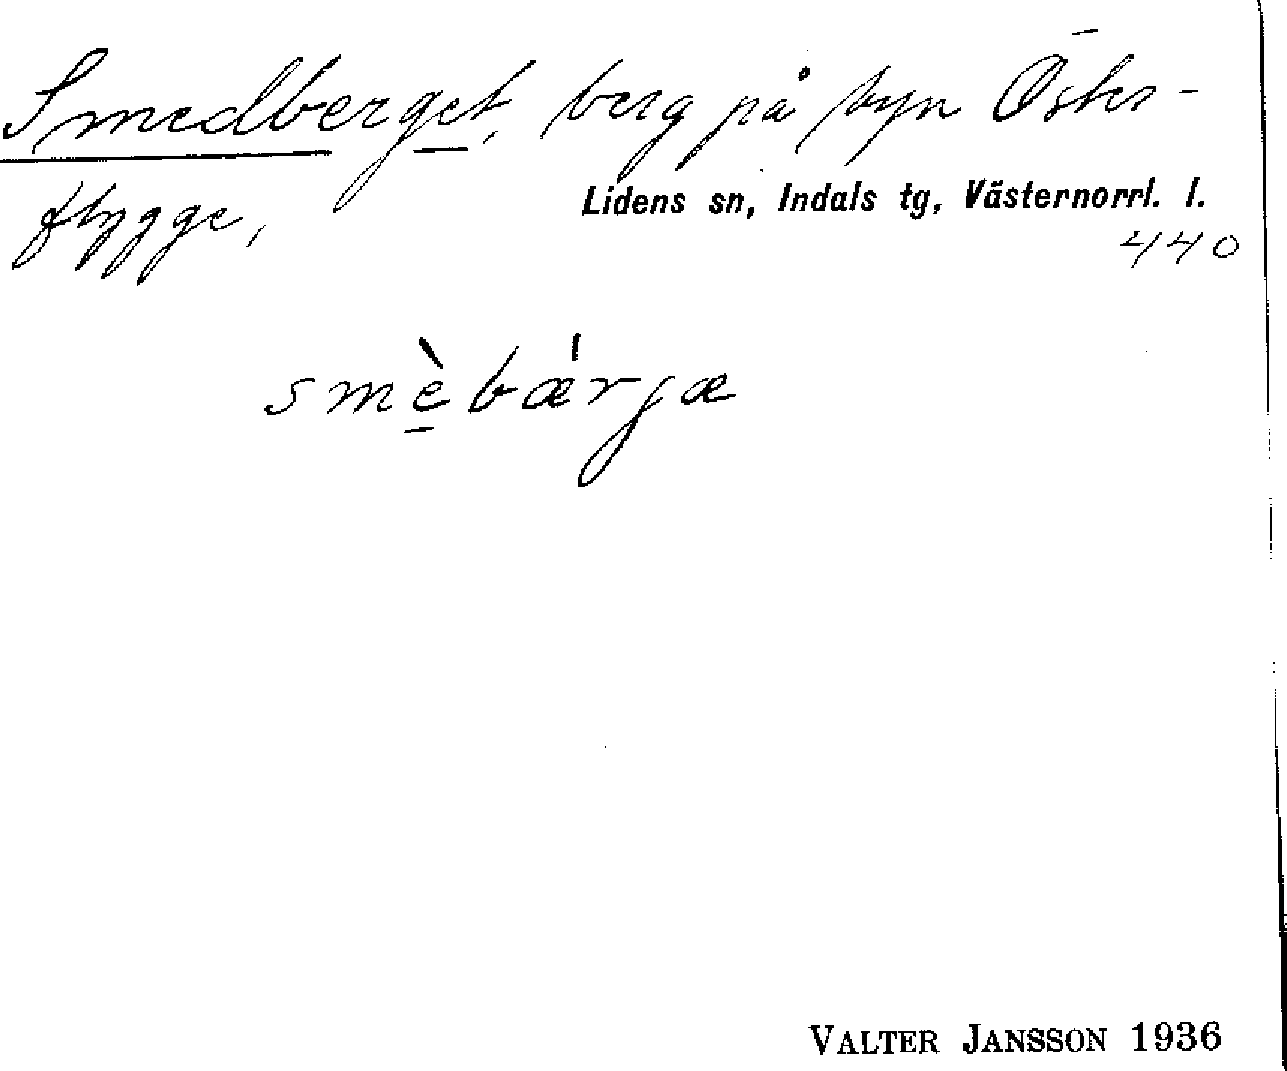 Smedberget, berg på byn Öster-
flygge,
Lidens sn, Indals tg, Västernorrl. l.
440
smèbǽrjæ
VALTER JANSSON 1936